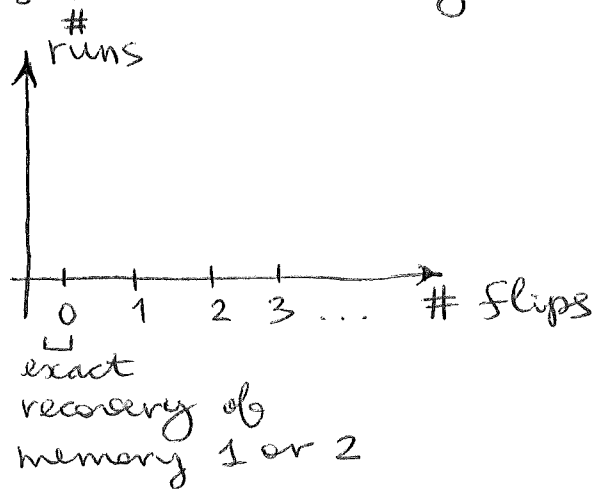 #
runs
0 1 2 3 ... # flips
exact
recovery of
memory 1 or 2